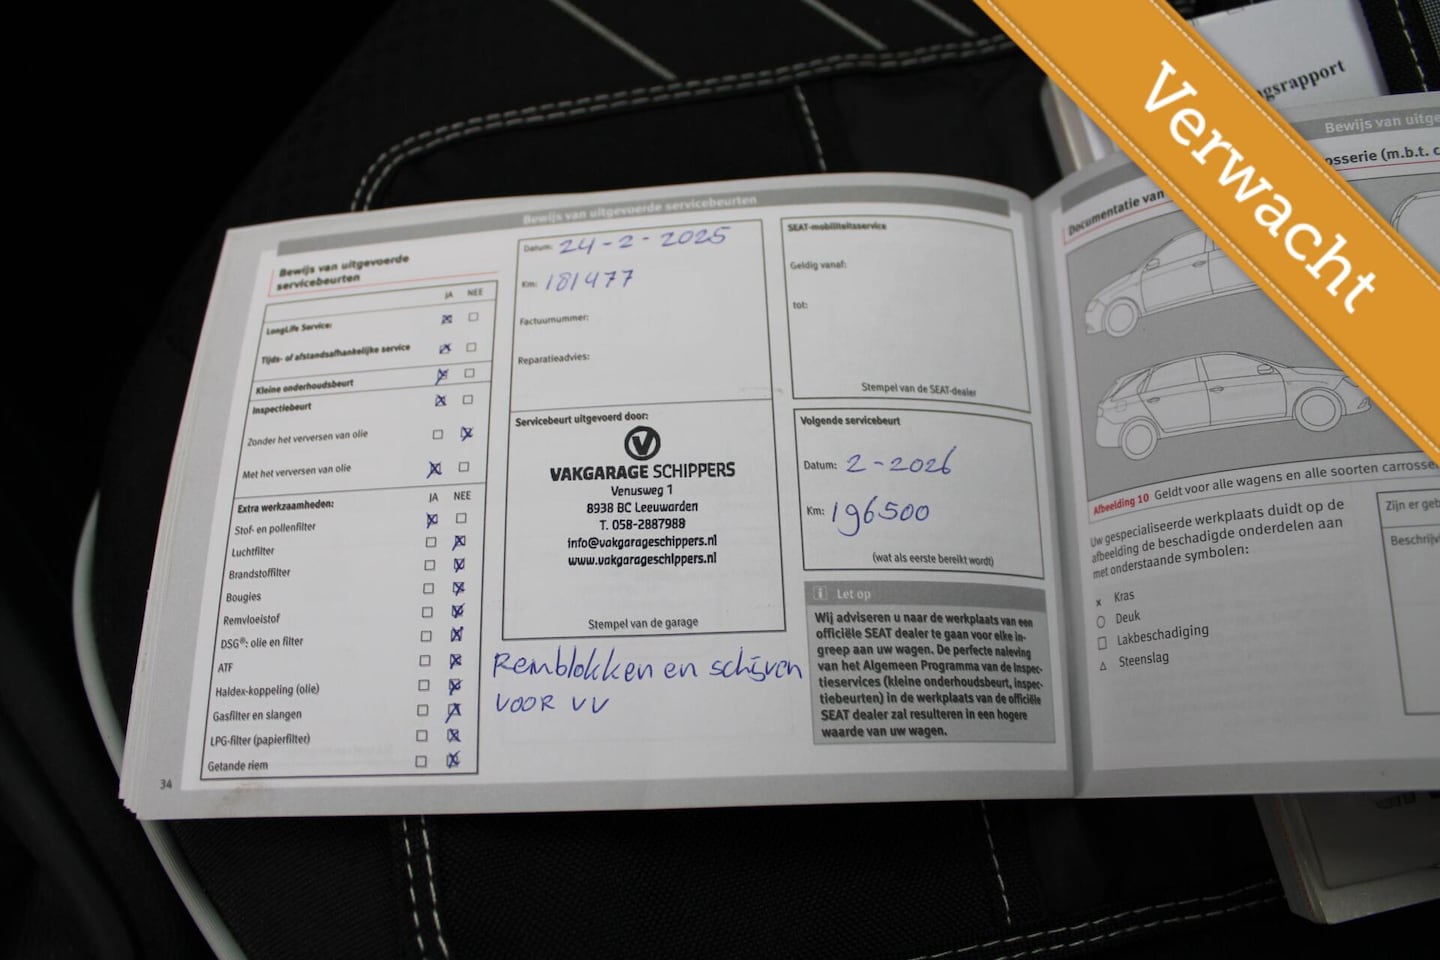 Verwacht
gsrapport
Bewijs van uitgevoerde servicebeurten
Bewijs van uitgevoerde
servicebeurten
JA NEE
LongLife Service:
Tijds- of afstandsafhankelijke service
Kleine onderhoudsbeurt
Inspectiebeurt
Zonder het verversen van olie
Met het verversen van olie
Extra werkzaamheden: JA NEE
Stof- en pollenfilter
Luchtfilter
Brandstoffilter
Bougies
Remvloeistof
DSG®: olie en filter
ATF
Haldex-koppeling (olie)
Gasfilter en slangen
LPG-filter (papierfilter)
Getande riem
34
Datum: 24-2-2025
Km: 181477
Factuurnummer:
Reparatieadvies:
Servicebeurt uitgevoerd door:
VAKGARAGE SCHIPPERS
Venusweg 1
8938 BC Leeuwarden
T. 058-2887988
info@vakgarageschippers.nl
www.vakgarageschippers.nl
Stempel van de garage
Remblokken en schijven
VOOR VV
SEAT-mobiliteitsservice
Geldig vanaf:
tot:
Stempel van de SEAT-dealer
Volgende servicebeurt
Datum: 2-2026
Km: 196500
(wat als eerste bereikt wordt)
i Let op
Wij adviseren u naar de werkplaats van een
officiële SEAT dealer te gaan voor elke in-
greep aan uw wagen. De perfecte naleving
van het Algemeen Programma van de Inspec-
tieservices (kleine onderhoudsbeurt, inspec-
tiebeurten) in de werkplaats van de officiële
SEAT dealer zal resulteren in een hogere
waarde van uw wagen.
Bewijs van uitge
Documentatie van
osserie (m.b.t. c
Afbeelding 10 Geldt voor alle wagens en alle soorten carrosse
Uw gespecialiseerde werkplaats duidt op de
afbeelding de beschadigde onderdelen aan
met onderstaande symbolen:
x Kras
○ Deuk
□ Lakbeschadiging
△ Steenslag
Zijn er geb
Beschrijvi